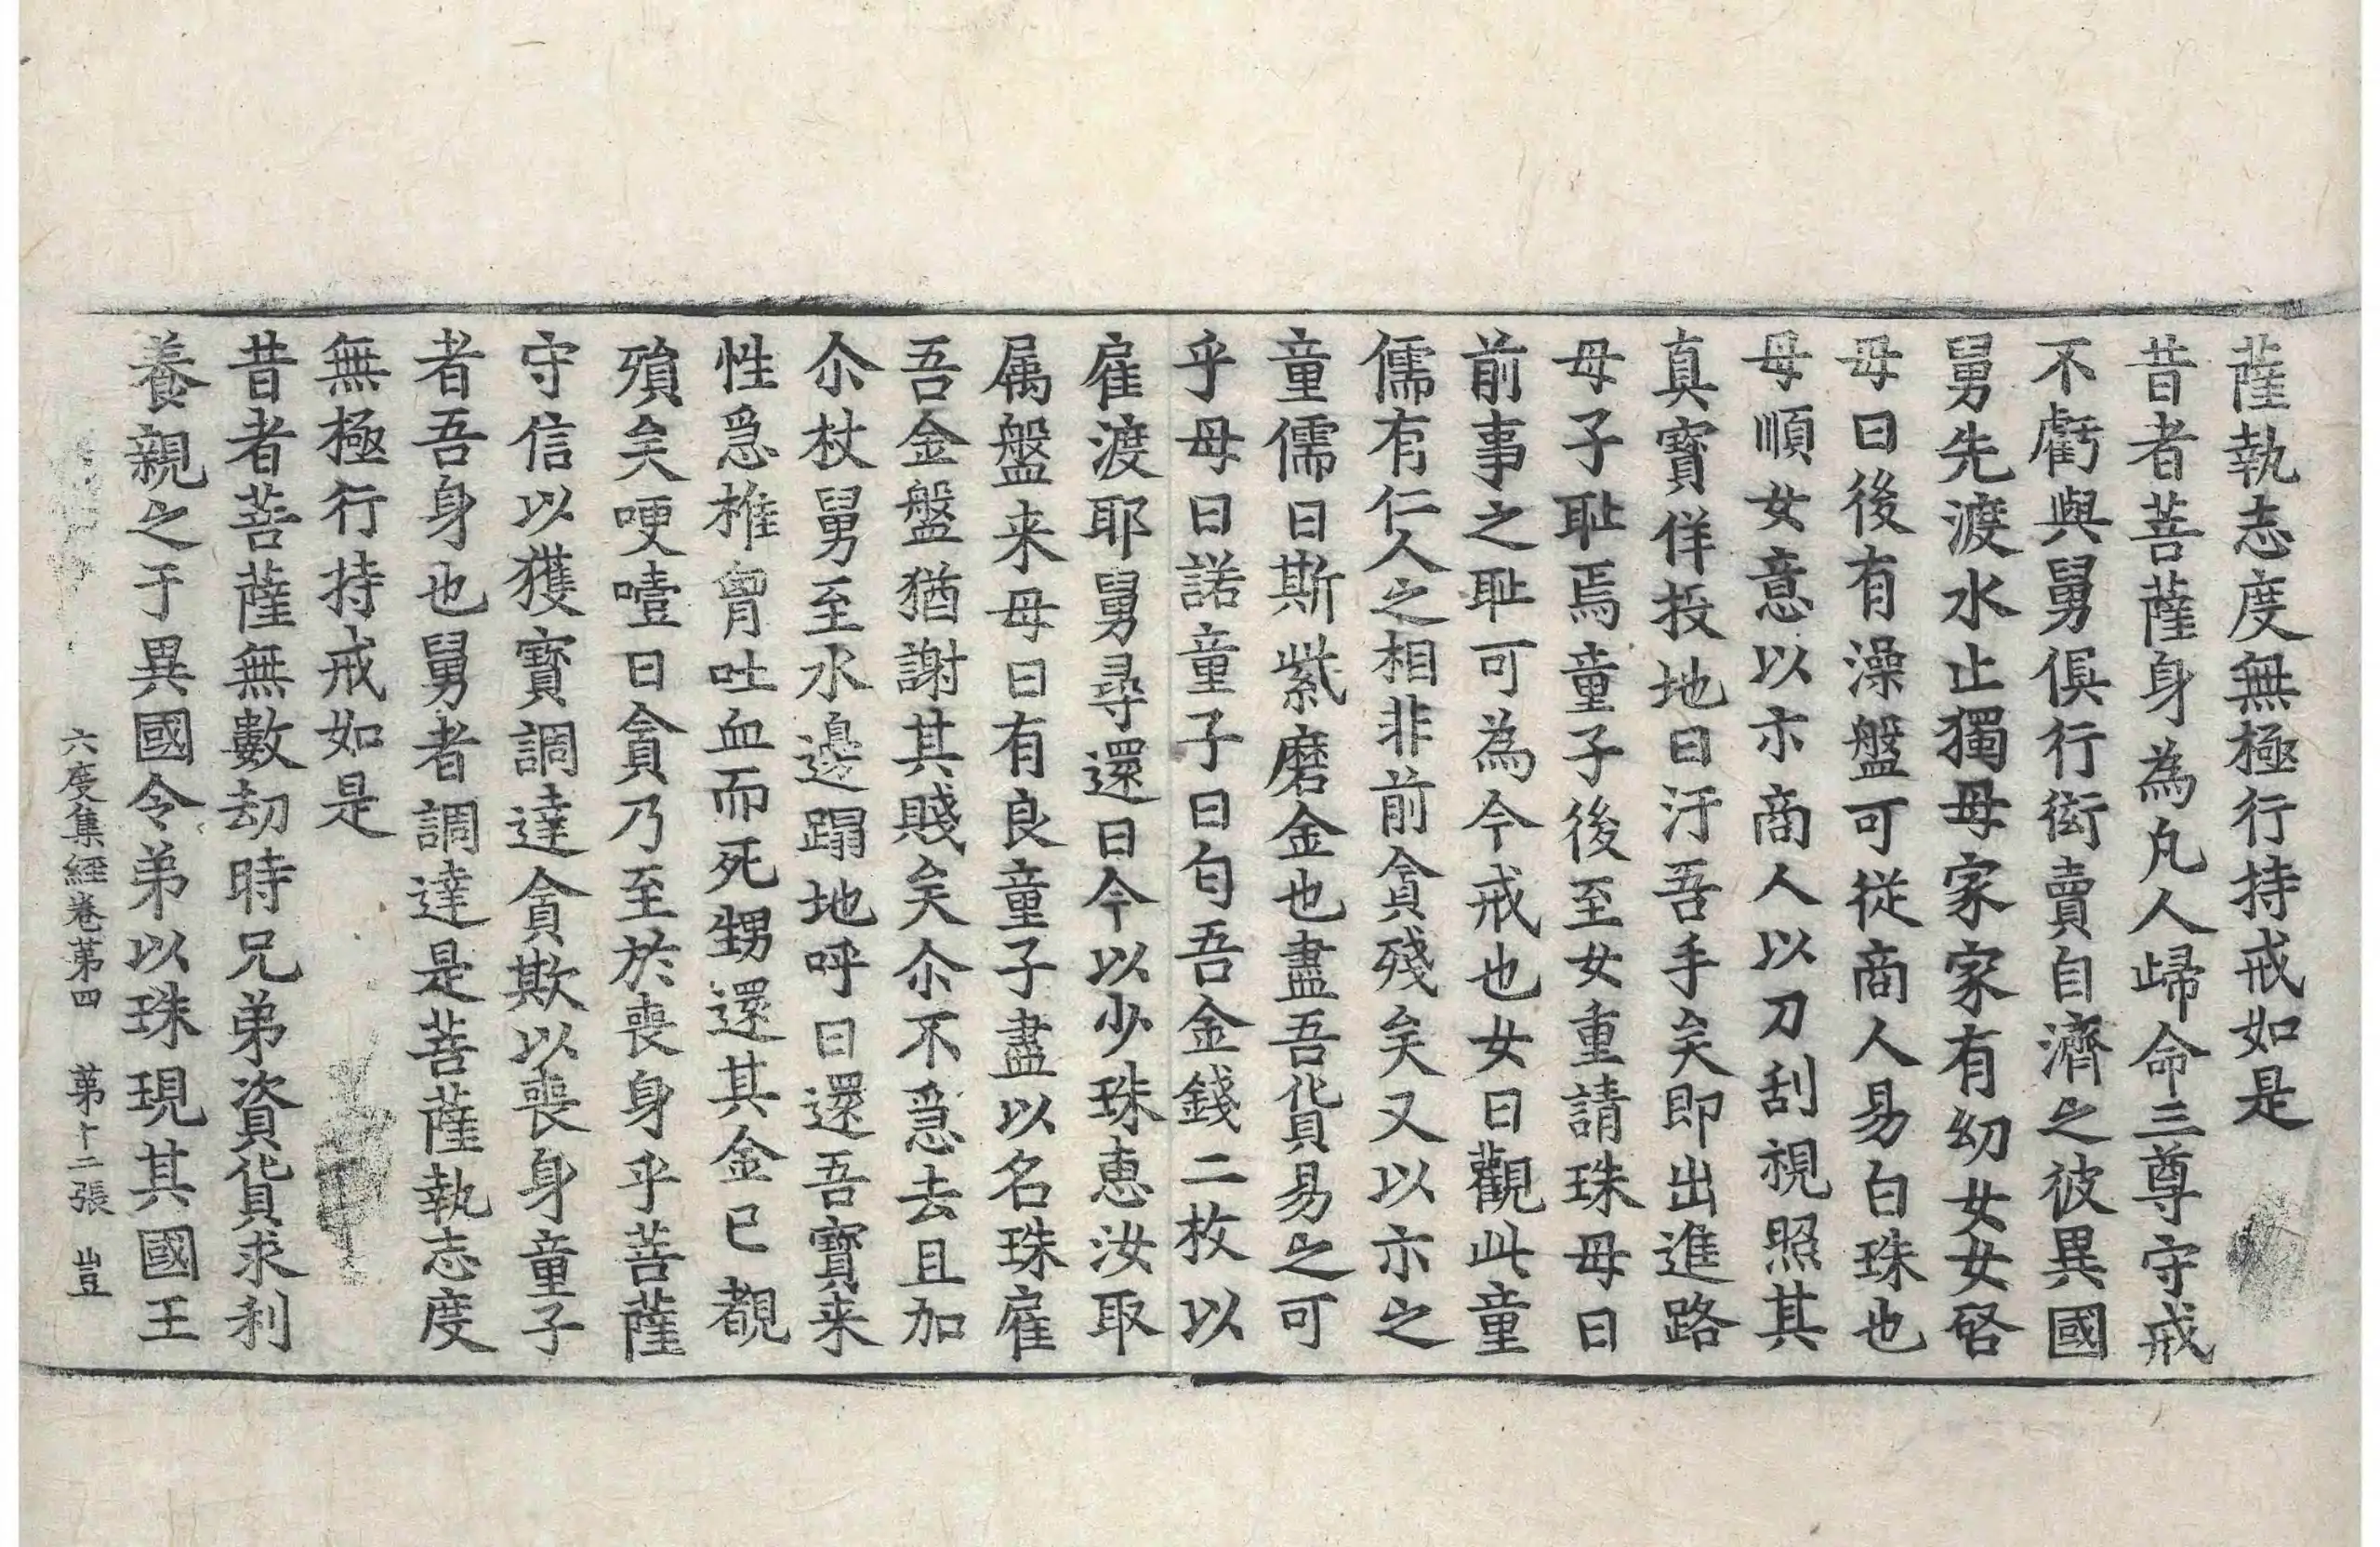 薩執志度無極行持戒如是
昔者菩薩身為凡人歸命三尊守戒
不虧與舅俱行衒賣自濟之彼異國
舅先渡水止獨母家家有幼女女啓
母曰後有澡盤可從商人易白珠也
母順女意以示商人以刀刮視照其
真寶佯投地曰汙吾手矣即出進路
母子恥焉童子後至女重請珠母曰
前事之恥可為今戒也女曰觀此童
儒有仁人之相非前貪殘矣又以示之
童儒曰斯紫磨金也盡吾貨易之可
乎母曰諾童子曰匃吾金錢二枚以
雇渡耶舅尋還曰今以少珠惠汝取
属盤来母曰有良童子盡以名珠雇
吾金盤猶謝其賤矣尒不急去且加
尒杖舅至水邊蹋地呼曰還吾寶来
性急椎胷吐血而死甥還其金已覩
殞矣哽噎曰貪乃至於喪身乎菩薩
守信以獲寶調達貪欺以喪身童子
者吾身也舅者調達是菩薩執志度
無極行持戒如是
昔者菩薩無數劫時兄弟資貨求利
養親之于異國令弟以珠現其國王
六度集經卷第四 第十二張 豈